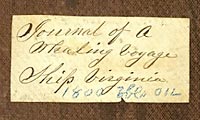 Journal of A
Whaling Voyage
Ship Virginia
1800 Bbls Oil